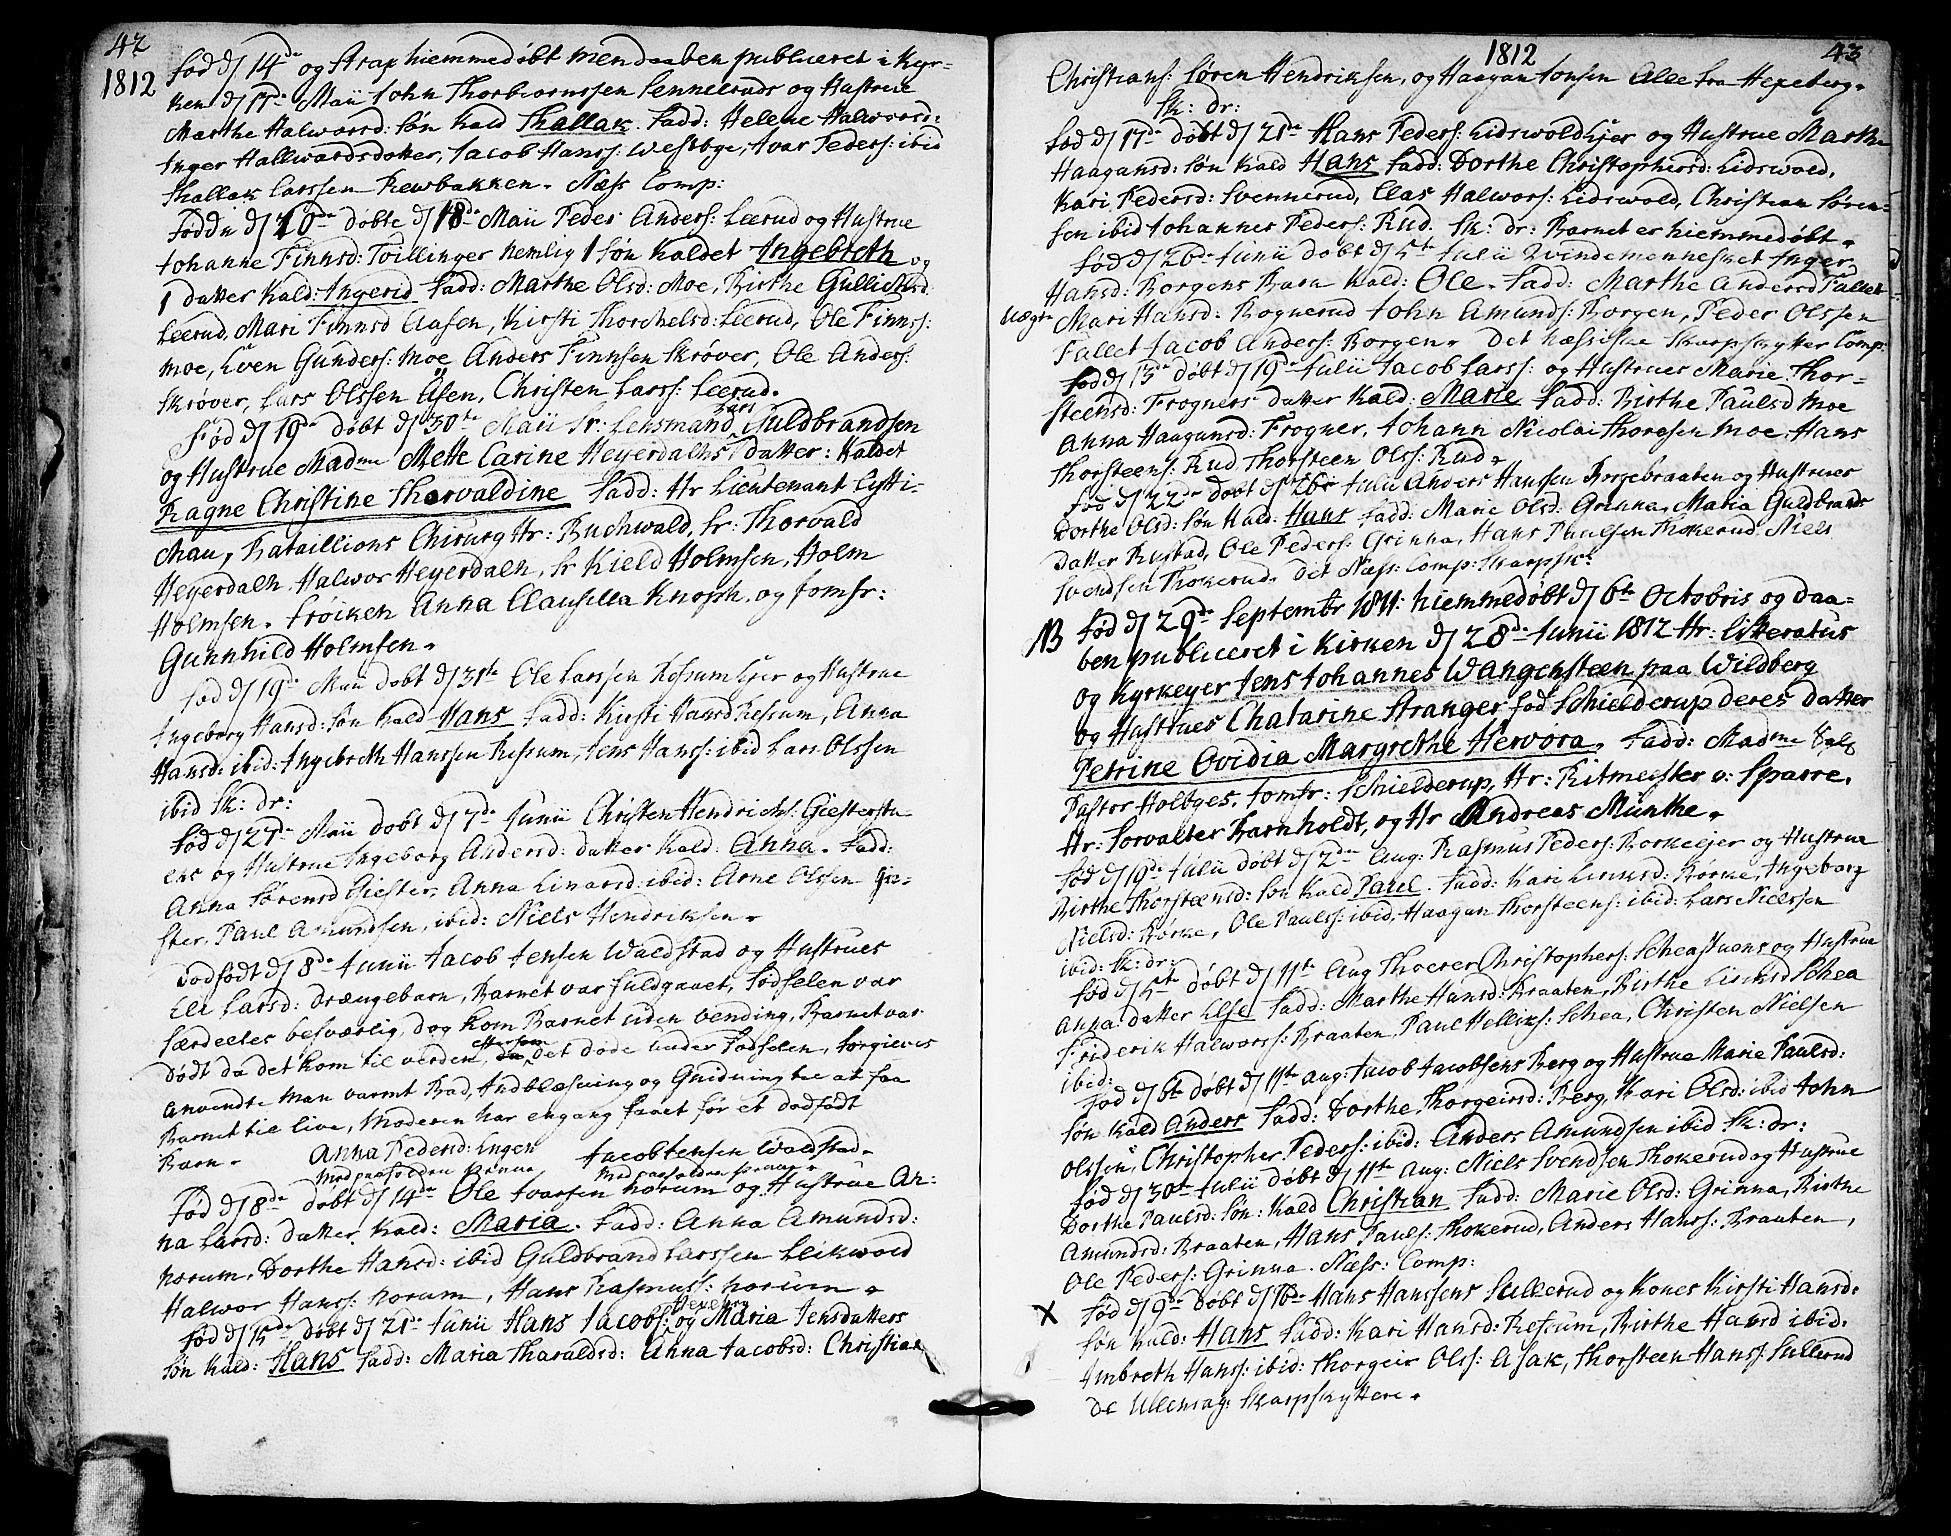 42
1812
Fød d 14de og strax hiemmedøbt men daaben publiceret i Kyr-
ken d 17de Maii John Thorbiørnssen Sennerud og Hustrue
Marthe Halworsd: søn kald Thallak. Fadd: Helene Halworsd:
Inger Hallwardsdatter, Jacob Hanss: Westbye, Ivar Peders: ibid
Thallak Larssen Rewbakken. Næss Comp:
Fødde d 10de døbte d 18de Maii Peder Anders: Leerud og Hustrue
Johanne Finnsd: Tvillinger nemlig 1 søn kaldet Ingebreth og
1 datter kald: Ingerid Fadd: Marthe Olsd: Moe, Birthe Gullichsd:
Leerud, Mari Finnsd Aasen, Kirsti Thorchelsd: Leerud, Ole Finnss:
Moe, Even Gunders: Moe Anders Finnsen Skrøver, Ole Anders:
Skrøver, Lars Olssen Åsen, Christen Larss: Leerud.
Fød d 19de døbt d 30te Maii Sr: Lensmand Lars Guldbrandsen
og Hustrue Madme Mette Carine Heyerdahls datter: kaldet
Ragne Christine Thorvaldine Fadd: Hr Lieutenant Lytti-
chau, Bataillions Chirurg Hr: Buchwald, Sr: Thorvald
Heyerdalh, Halwor Heyerdalh, Sr Kield Holmsen, Holm
Holmsen. Frøiken Anna Clausilla Knoph, og Jomfr:
Gunnhild Holmsen.
Fød d 19de Maii døbt d 31te Ole Larssen Ressum Eier og Hustrue
Ingeborg Hansd: søn kald Hans Fadd: Kirsti Hansd Ressum, Anna
Hansd: ibid: Ingebreth Hanssen Ressum, Jens Hanss: ibid Lars Olssen
ibid Sk: dr:
Fød d 27de Maii døbt d 7de Junii Christen Hendrichs: Giesterstu-
ens og Hustrue Ingeborg Andersd: datter kald: Anna. Fadd:
Anna Sørensd Giester, Anna Einarsd: ibid: Arne Olssen Gie-
ster, Paul Amundsen, ibid: Niels Hendriksen.
Dødfødt d 8de Junii Jacob Jensen Waldstad og Hustrues
Eli Larsd: Drængebarn, Barnet var fuldgaaet, Fødselen var
særdeeles besværlig, dog kom Barnet uden vending, Barnet var
dødt da det kom til verden, eftersom det døde under Fødselen, forgieves
anvendte man varmt Bad, Indblæsning og Gnidning for at faa
Barnet til live, Moderen har engang faaet før et dødfødt
Barn. Anna Pedersd: Engen Jacob Jensen Waldstad.
Med paaholden Penne Med paaholden Penne.
Fød d 8de døbt d 14de Ole Ivarsen Horum og Hustrue An-
na Larsd: datter kald: Maria. Fadd: Anna Amundsd:
Horum, Dorthe Hansd: ibid Guldbrand Larssen Leikwold
Halwor Hanss: Horum, Hans Rasmuss: Horum.
Fød d 15de døbt d 21de Junii Hans Jacobs: Hexeberg og Maria Jensdatters
søn kald: Hans Fadd: Maria Tharaldsd: Anna Jacobsd: Christian
1812
43
Christians: Søren Hendriksen, og Haagan Jonsen Alle fra Hexeberg.
Sk: dr:
Fød d 17de døbt d 21de Hans Peders: Eidswold Ejer og Hustrue Marthe
Haagansd: søn kald Hans Fadd: Dorthe Christophersd: Eidswold,
Kari Pedersd: Svennerud, Claas Halwors: Eidswold, Christian Søren-
sen ibid Johannes Peders: Rud. Sk: dr: Barnet er hiemmedøbt.
Fød d 26de Junii døbt d 5te Julii Qvindemennesket Inger
Hansd: Borgens Barn kald: Ole. Fadd: Marthe Andersd Fallet
Uægte
Mari Hansd: Rognerud John Amunds: Borgen, Peder Olssen
Fallet Jacob Anders: Borgen. Det Næssiske Skarpskytter Comp:
Fød d 13de døbt d 19de Julii Jacob Larss: og Hustrues Marie Thor-
steensd: Frogners datter kald: Marie Fadd: Birthe Paulsd Moe
Anna Haagansd: Frogner, Johann Nicolai Thoresen Moe, Hans
Thorsteens: Rud Thorsteen Olss: Rud.
Fød d 22de døbt d 26de Julii Anders Hanssen Borgebraaten og Hustrues
Dorthe Olsd: søn kald: Hans Fadd: Marie Olsd: Grinna, Maria Guldbrands
datter Rustad, Ole Peders: Grinna, Hans Paulsen Thokerud Niels
Svendsen Thokerud. Det Næss: Comp: Skarpsk:
NB
Fød d 29de Septembr 1811: hiemmedøbt d 6te Octobris og daa-
ben publiceret i Kirken d 28de Junii 1812 Hr: Litteratus
og Kyrkeyer Jens Johannes Wangensteen paa Wildberg
og Hustrues Chatarine Stranger fød Schielderup deres datter
Petrine Ovidia Margrethe Hervora. Fadd: Madme Sal:
Pastor Holbyes, Jomfr: Schielderup, Hr: Ritmeister v: Sparre,
Hr: Forvalter Barnholdt, og Hr Andreas Münthe.
Fød d 19de Julii døbt d 2de Aug: Rasmus Peders: Børkeejer og Hustrue
Birthe Thorsteensd: søn kald Pauel. Fadd: Kari Einarsd: Børke, Ingeborg
Nielsd: Børke, Ole Paulss: ibid, Haagan Thorsteens: ibid: Lars Nielssen
ibid: Sk: dr:
Fød d 5te døbt d 11te Aug Thoerer Christophers: Scheastuens og Hustrue
Anna datter Else Fadd: Marthe Hansd: Braaten, Birthe Einarsd Schea
Friderik Halworss: Braaten, Paul Helliks: Schea, Christen Nielsen
ibid:
Fød d 6te døbt d 11te Aug: Jacob Jacobsens Berg og Hustrue Marie Paulsd:
søn kald Anders Fadd: Dorthe Thorgeirsd: Berg, Kari Olsd: ibid John
Olssen, Christopher Peders: ibid: Anders Amundsen ibid Sk: dr:
Fød d 30te Julii døbt d 11te Aug: Niels Svendsen Thokerud og Hustrue
Dorthe Paulsd: søn: kald Christian Fadd: Marie Olsd: Grinna, Birthe
Amundsd: Braaten, Hans Pauls: Thokerud, Anders Hanss: Braaten,
Ole Peders: Grinna. Næss: Comp:
X
Fød d 9de døbt d 16de Hans Hanssens Sullerud og Kones Kirsti Hansd:
søn kald: Hans Fadd: Kari Hansd: Ressum, Birthe Hansd ibid:
Imbreth Hanss: ibid: Thorgeir Olss: Asak, Thorsteen Hanss Sullerud
De Ullensag: Skarpskyttere.